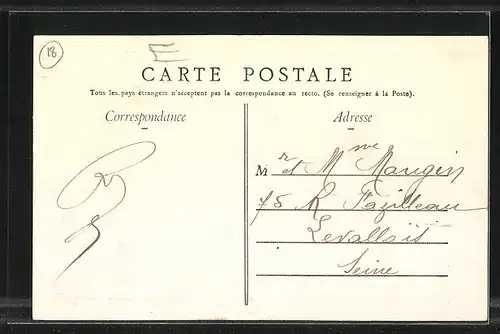 18
E
CARTE POSTALE
Tous les pays étrangers n'acceptent pas la correspondance au recto. (Se renseigner à la Poste).
Correspondance
Adresse
Mr et Mme Mangin
75 R Fazilleau
Levallois
Seine